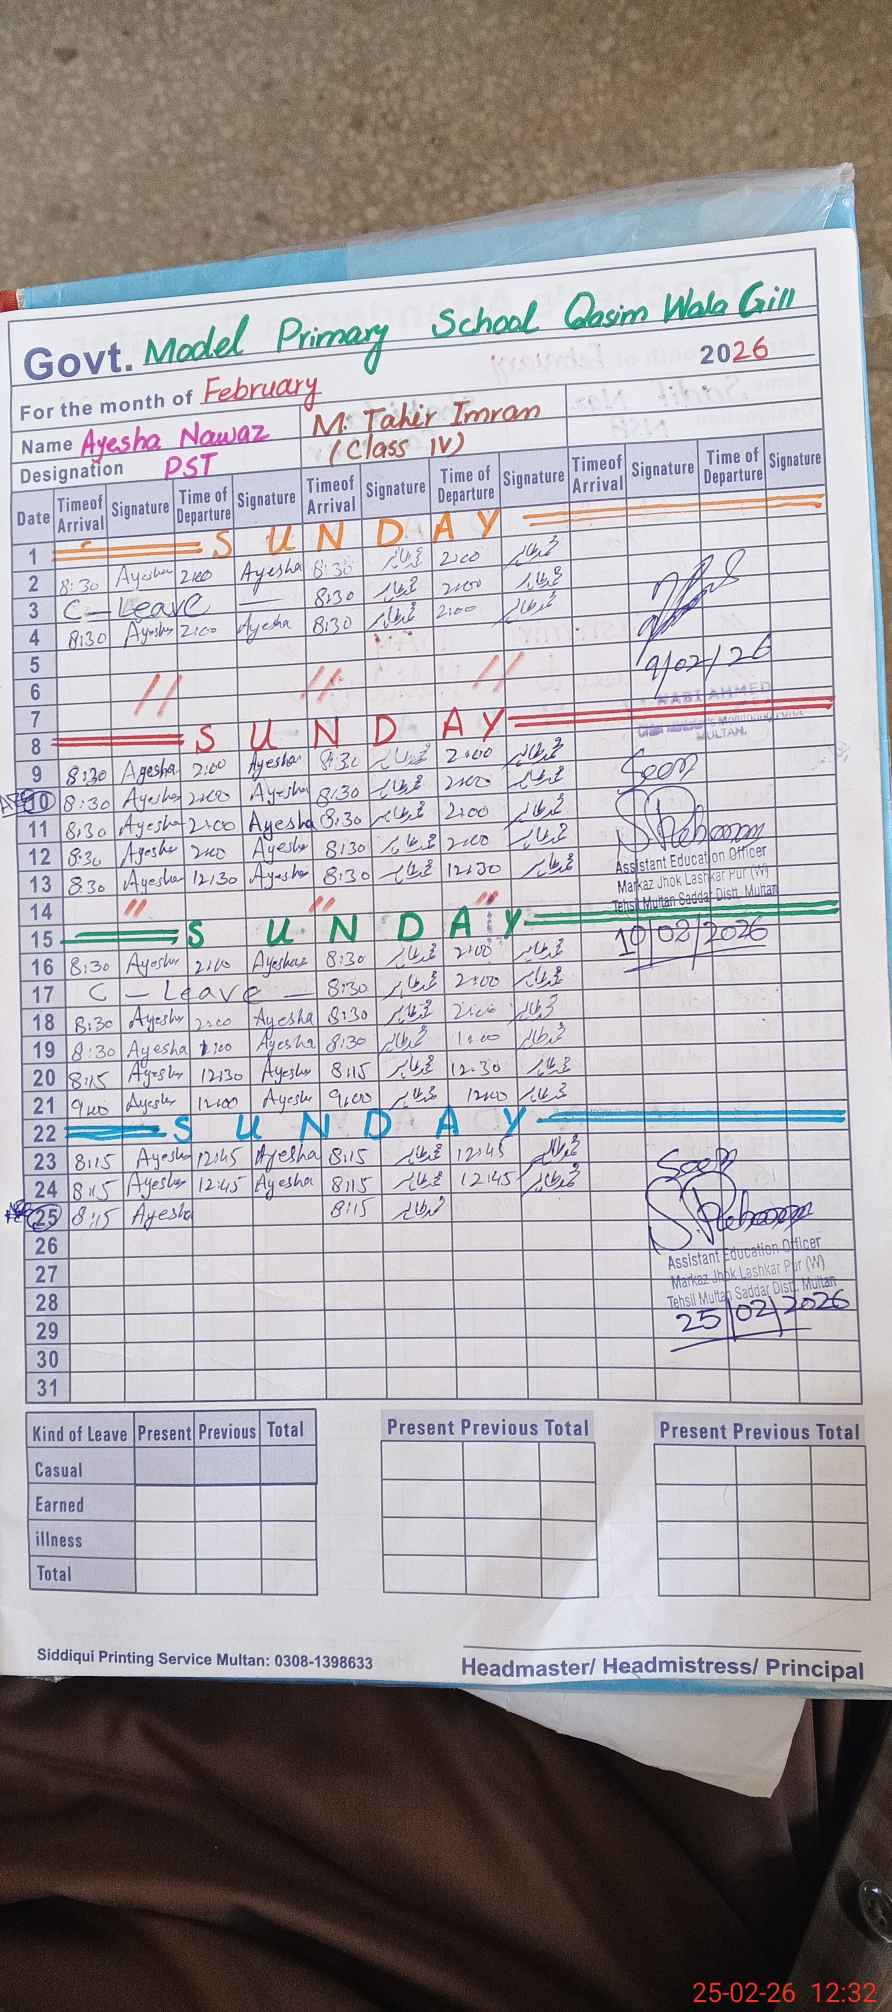 Govt. Model Primary School Qasim Wala Gill
For the month of February 2026
Name Ayesha Nawaz M. Tahir Imran
Designation PST (Class IV)
Date Time of Arrival Signature Time of Departure Signature Time of Arrival Signature Time of Departure Signature Time of Arrival Signature Time of Departure Signature
1 SUNDAY
2 8:30 Ayesha 2:00 Ayesha 8:30 2:00
3 C - Leave - 8:30 2:00
4 8:30 Ayesha 2:00 Ayesha 8:30 2:00
5
9/02/26
6 // // //
7
8 SUNDAY
MULTAN.
9 8:30 Ayesha 2:00 Ayesha 8:30 2:00
Seen
10 8:30 Ayesha 2:00 Ayesha 8:30 2:00
11 8:30 Ayesha 2:00 Ayesha 8:30 2:00
12 8:30 Ayesha 2:00 Ayesha 8:30 2:00
13 8:30 Ayesha 12:30 Ayesha 8:30 12:30
Assistant Education Officer
Markaz Jhok Lashkar Pur (W)
Tehsil Multan Saddar Distt. Multan
14 // // //
15 SUNDAY
10/02/2026
16 8:30 Ayesha 2:00 Ayesha 8:30 2:00
17 C - Leave - 8:30 2:00
18 8:30 Ayesha 2:00 Ayesha 8:30 2:00
19 8:30 Ayesha 1:00 Ayesha 8:30 1:00
20 8:15 Ayesha 12:30 Ayesha 8:15 12:30
21 9:00 Ayesha 12:00 Ayesha 9:00 12:00
22 SUNDAY
23 8:15 Ayesha 12:45 Ayesha 8:15 12:45
24 8:15 Ayesha 12:45 Ayesha 8:15 12:45
Seen
25 8:15 Ayesha 8:15
26
Assistant Education Officer
27
Markaz Jhok Lashkar Pur (W)
28
Tehsil Multan Saddar Distt. Multan
25/02/2026
29
30
31
Kind of Leave Present Previous Total Present Previous Total Present Previous Total
Casual
Earned
illness
Total
Siddiqui Printing Service Multan: 0308-1398633
Headmaster/ Headmistress/ Principal
25-02-26 12:32